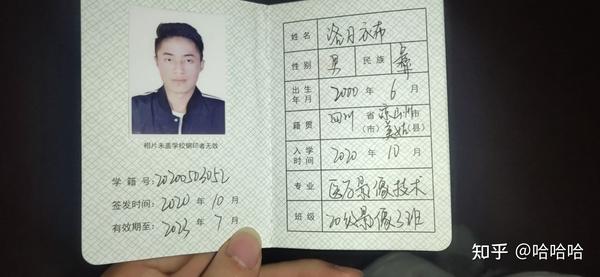 相片未盖学校钢印者无效
学籍号:20200503052
签发时间:2020年10月
有效期至:2023年7月
姓名 洛日衣布
性别 男 民族 彝
出生年月 2000年6月
籍贯 四川省凉山州市(市)美姑(县)
入学时间 2020年10月
专业 医学影像技术
班级 20级影像3班
知乎 @哈哈哈